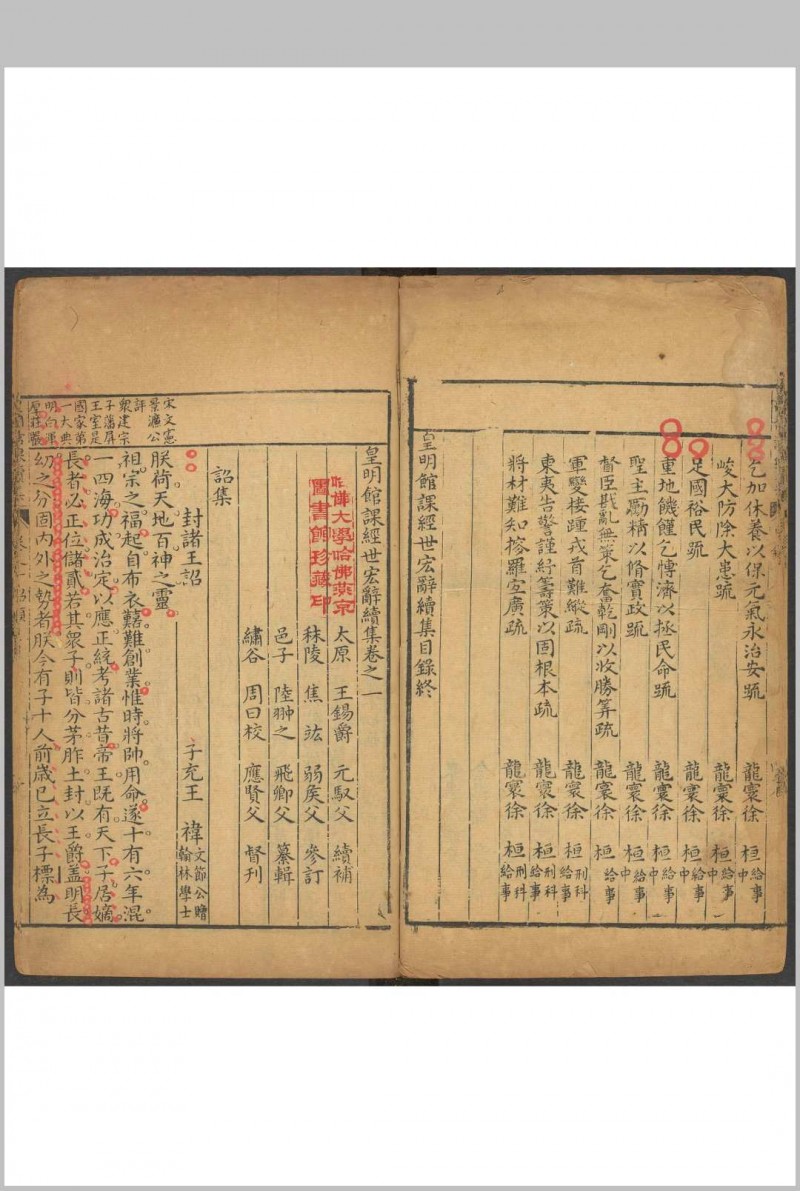 乞加休養以保元氣永治安䟽 龍寰徐 桓 給事中
峻大防除大患䟽 龍寰徐 桓 給事中
足國裕民䟽 龍寰徐 桓 給事中
重地饑饉乞慱濟以拯民命䟽 龍寰徐 桓 給事中
聖主勵精以脩實政䟽 龍寰徐 桓 給事
督臣戡亂無策乞奮乾剛以收勝筭疏 龍寰徐 桓 給事
軍變接踵戎首難縱疏 龍寰徐 桓 刑科給事
東夷告警謹紓籌策以固根本疏 龍寰徐 桓 刑科給事
將材難知搜羅宜廣疏 龍寰徐 桓 刑科給事
皇明館課經世宏辭續集目錄終
皇明館課經世宏辭續集卷之一
太原 王錫爵 元馭父 續補
秣陵 焦竑 弱侯父 參訂
邑子 陸翀之 飛卿父 纂輯
繡谷 周曰校 應賢父 督刊
哈佛大學哈佛燕京
圖書館珍藏印
詔集
封諸王詔 子充王 禕 文節公贈翰林學士
朕荷天地百神之靈
祖宗之福起自布衣囏難創業惟時將帥用命遂十有六年混
一四海功成治定以應正統考諸古昔帝王既有天下子居嫡
長者必正位儲貳若其衆子則皆分茅胙土封以王爵盖明長
幼之分固內外之勢者朕今有子十人前歲已立長子標為
宋文憲
景濂公
評
衆建宗
子藩屏
王室是
國家第
一大典